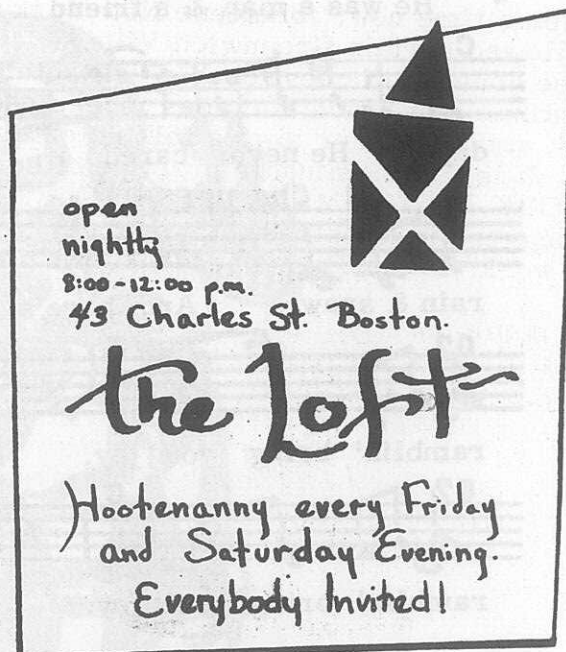 He was a man & a friend
open
nightly
8:00-12:00 p.m.
43 Charles St. Boston.
the Loft
Hootenanny every Friday
and Saturday Evening.
Everybody Invited!